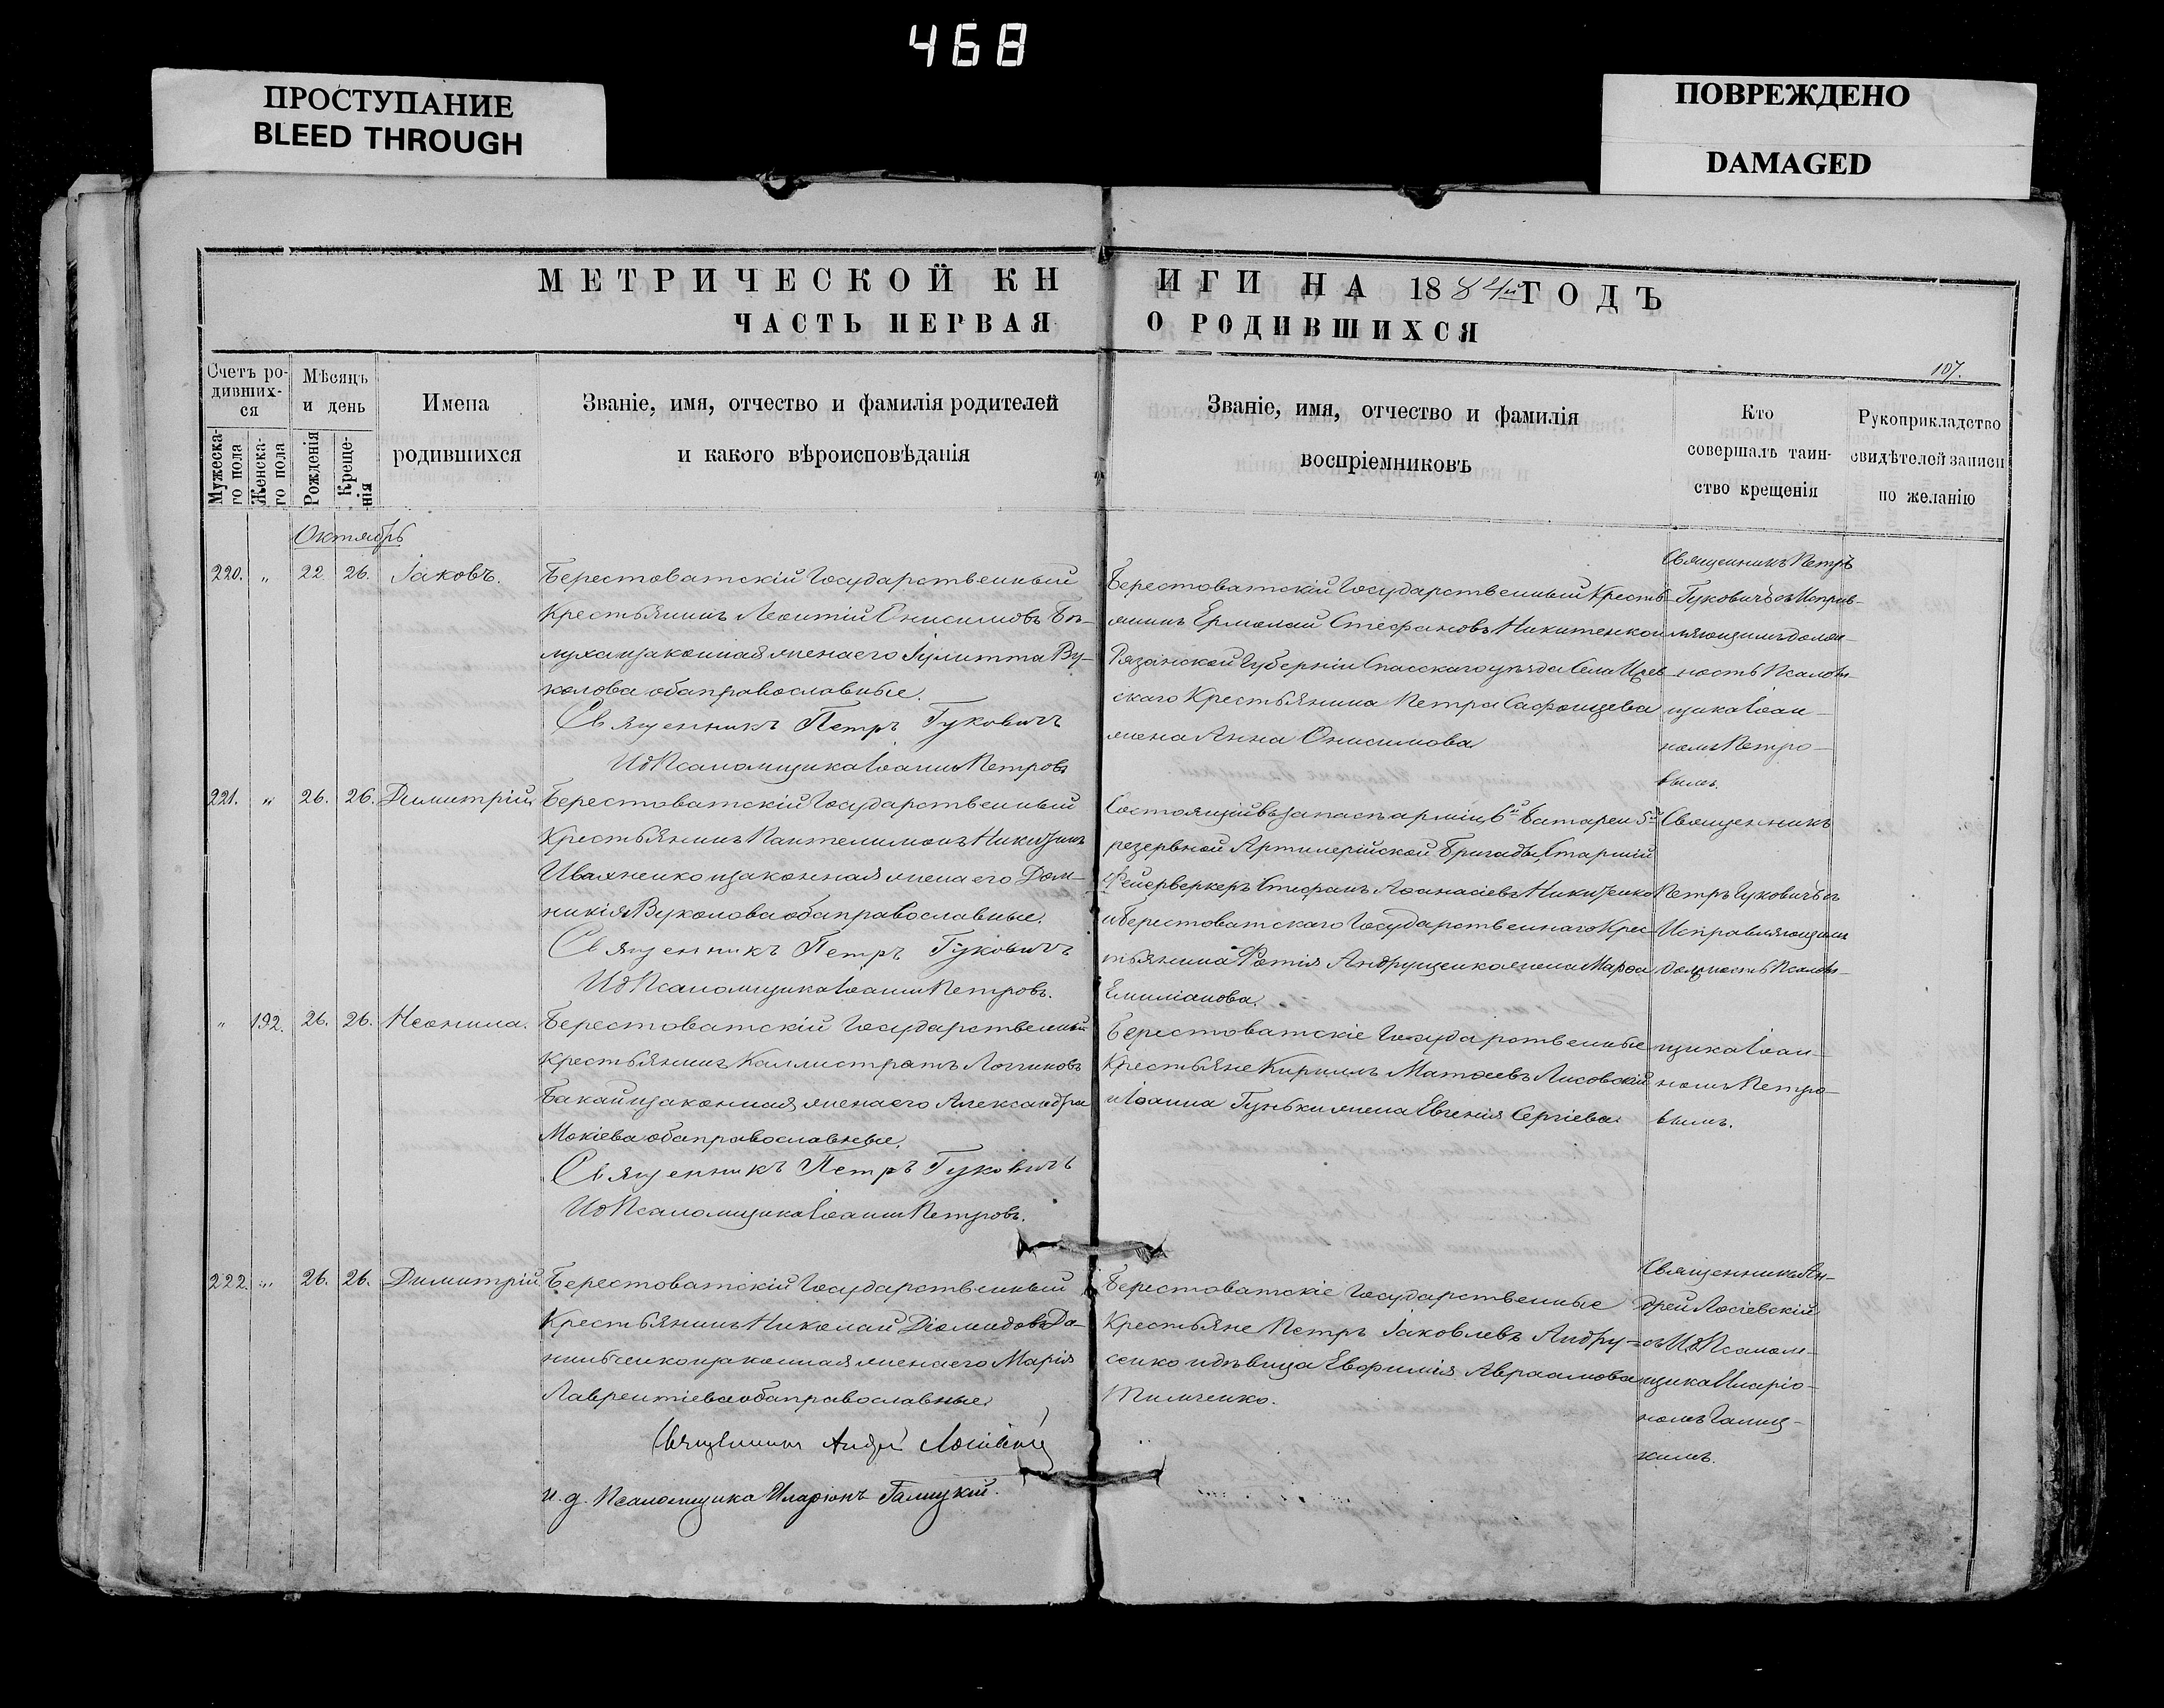 468
ПРОСТУПАНИЕ
BLEED THROUGH
ПОВРЕЖДЕНО
DAMAGED
МЕТРИЧЕСКОЙ КНИГИ НА 1884й ГОДЪ
ЧАСТЬ ПЕРВАЯ О РОДИВШИХСЯ
107.
Счетъ ро-
дивших-
ся
Мужеска-
го пола
Женска-
го пола
Мѣсяцъ
и день
Рожденія
Креще-
нія
Имена
родившихся
Званіе, имя, отчество и фамилія родителей
и какого вѣроисповѣданія
Званіе, имя, отчество и фамилія
воспріемниковъ
Кто
совершалъ таин-
ство крещенія
Рукоприкладство
свидѣтелей записи
по желанію
Октябрь
220. „ 22. 26. Іаковъ.
Берестоватскій Государственный
Крестьянинъ Леонтій Онисимовъ Бѣ-
луха изаконная женаего Іулитта Ву-
колова обаправославные.
Священникъ Петръ Гуковичъ
ИдПсаломщика Іоаннъ Петровъ
Берестоватскій Государственный Кресть-
янинъ Ермолай Стефановъ Никитенко и
Рязанской Губерніи Спасскаго уѣзда Села
скаго Крестьянина Петра Сафонцева
жена Анна Онисимова
Священникъ Петръ
Гуковичъ съ Исправ-
ляющимъ долж-
ность Псалом-
щика Іоан-
номъ Петро-
вымъ.
221. „ 26. 26. Димитрій
Берестоватскій Государственный
Крестьянинъ Пантелимонъ Никитинъ
Иваненко изаконная жена его Дом-
никія Вуколова обаправославные.
Священникъ Петръ Гуковичъ
ИдПсаломщика Іоаннъ Петровъ.
Состоящій въ запасѣ арміи 6й батареи 5й
резервной Артилерійской Бригады, Старшій
Фейерверкеръ Стефанъ Аѳанасіевъ Никитенко
и Берестоватскаго Государственнаго Крес-
тьянина Фотія Андрущенка жена Марѳа
Емиліанова.
Священникъ
Петръ Гуковичъ съ
Исправляющимъ
должность Псалом-
щика Іоан-
номъ Петро-
вымъ.
„ 192. 26. 26. Неонила.
Берестоватскій Государственный
Крестьянинъ Каллистратъ Логгиновъ
Бакай изаконная женаего Александра
Мокіева обаправославные.
Священникъ Петръ Гуковичъ
ИдПсаломщика Іоаннъ Петровъ.
Берестоватскіе Государственные
Крестьяне Кириллъ Матѳеевъ Лисовскій
и Іоанна Гунькижена Евгенія Сергіева
222. „ 26. 26. Димитрій
Берестоватскій Государственный
Крестьянинъ Николай Діомидовъ Да-
нильченко изаконная женаего Марія
Лаврентіева обаправославные.
Священникъ Андрей Лосіевскій
и. д. Псаломщика Иларіонъ Галицкій.
Берестоватскіе Государственные
Крестьяне Петръ Іаковлевъ Андру-
сенко идѣвица Евфимія Авраамова
Тимченко.
Священникъ Ан-
дрей Лосіевскій
съ ИдПсалом-
щика Иларіо-
номъ Галиц-
кимъ.